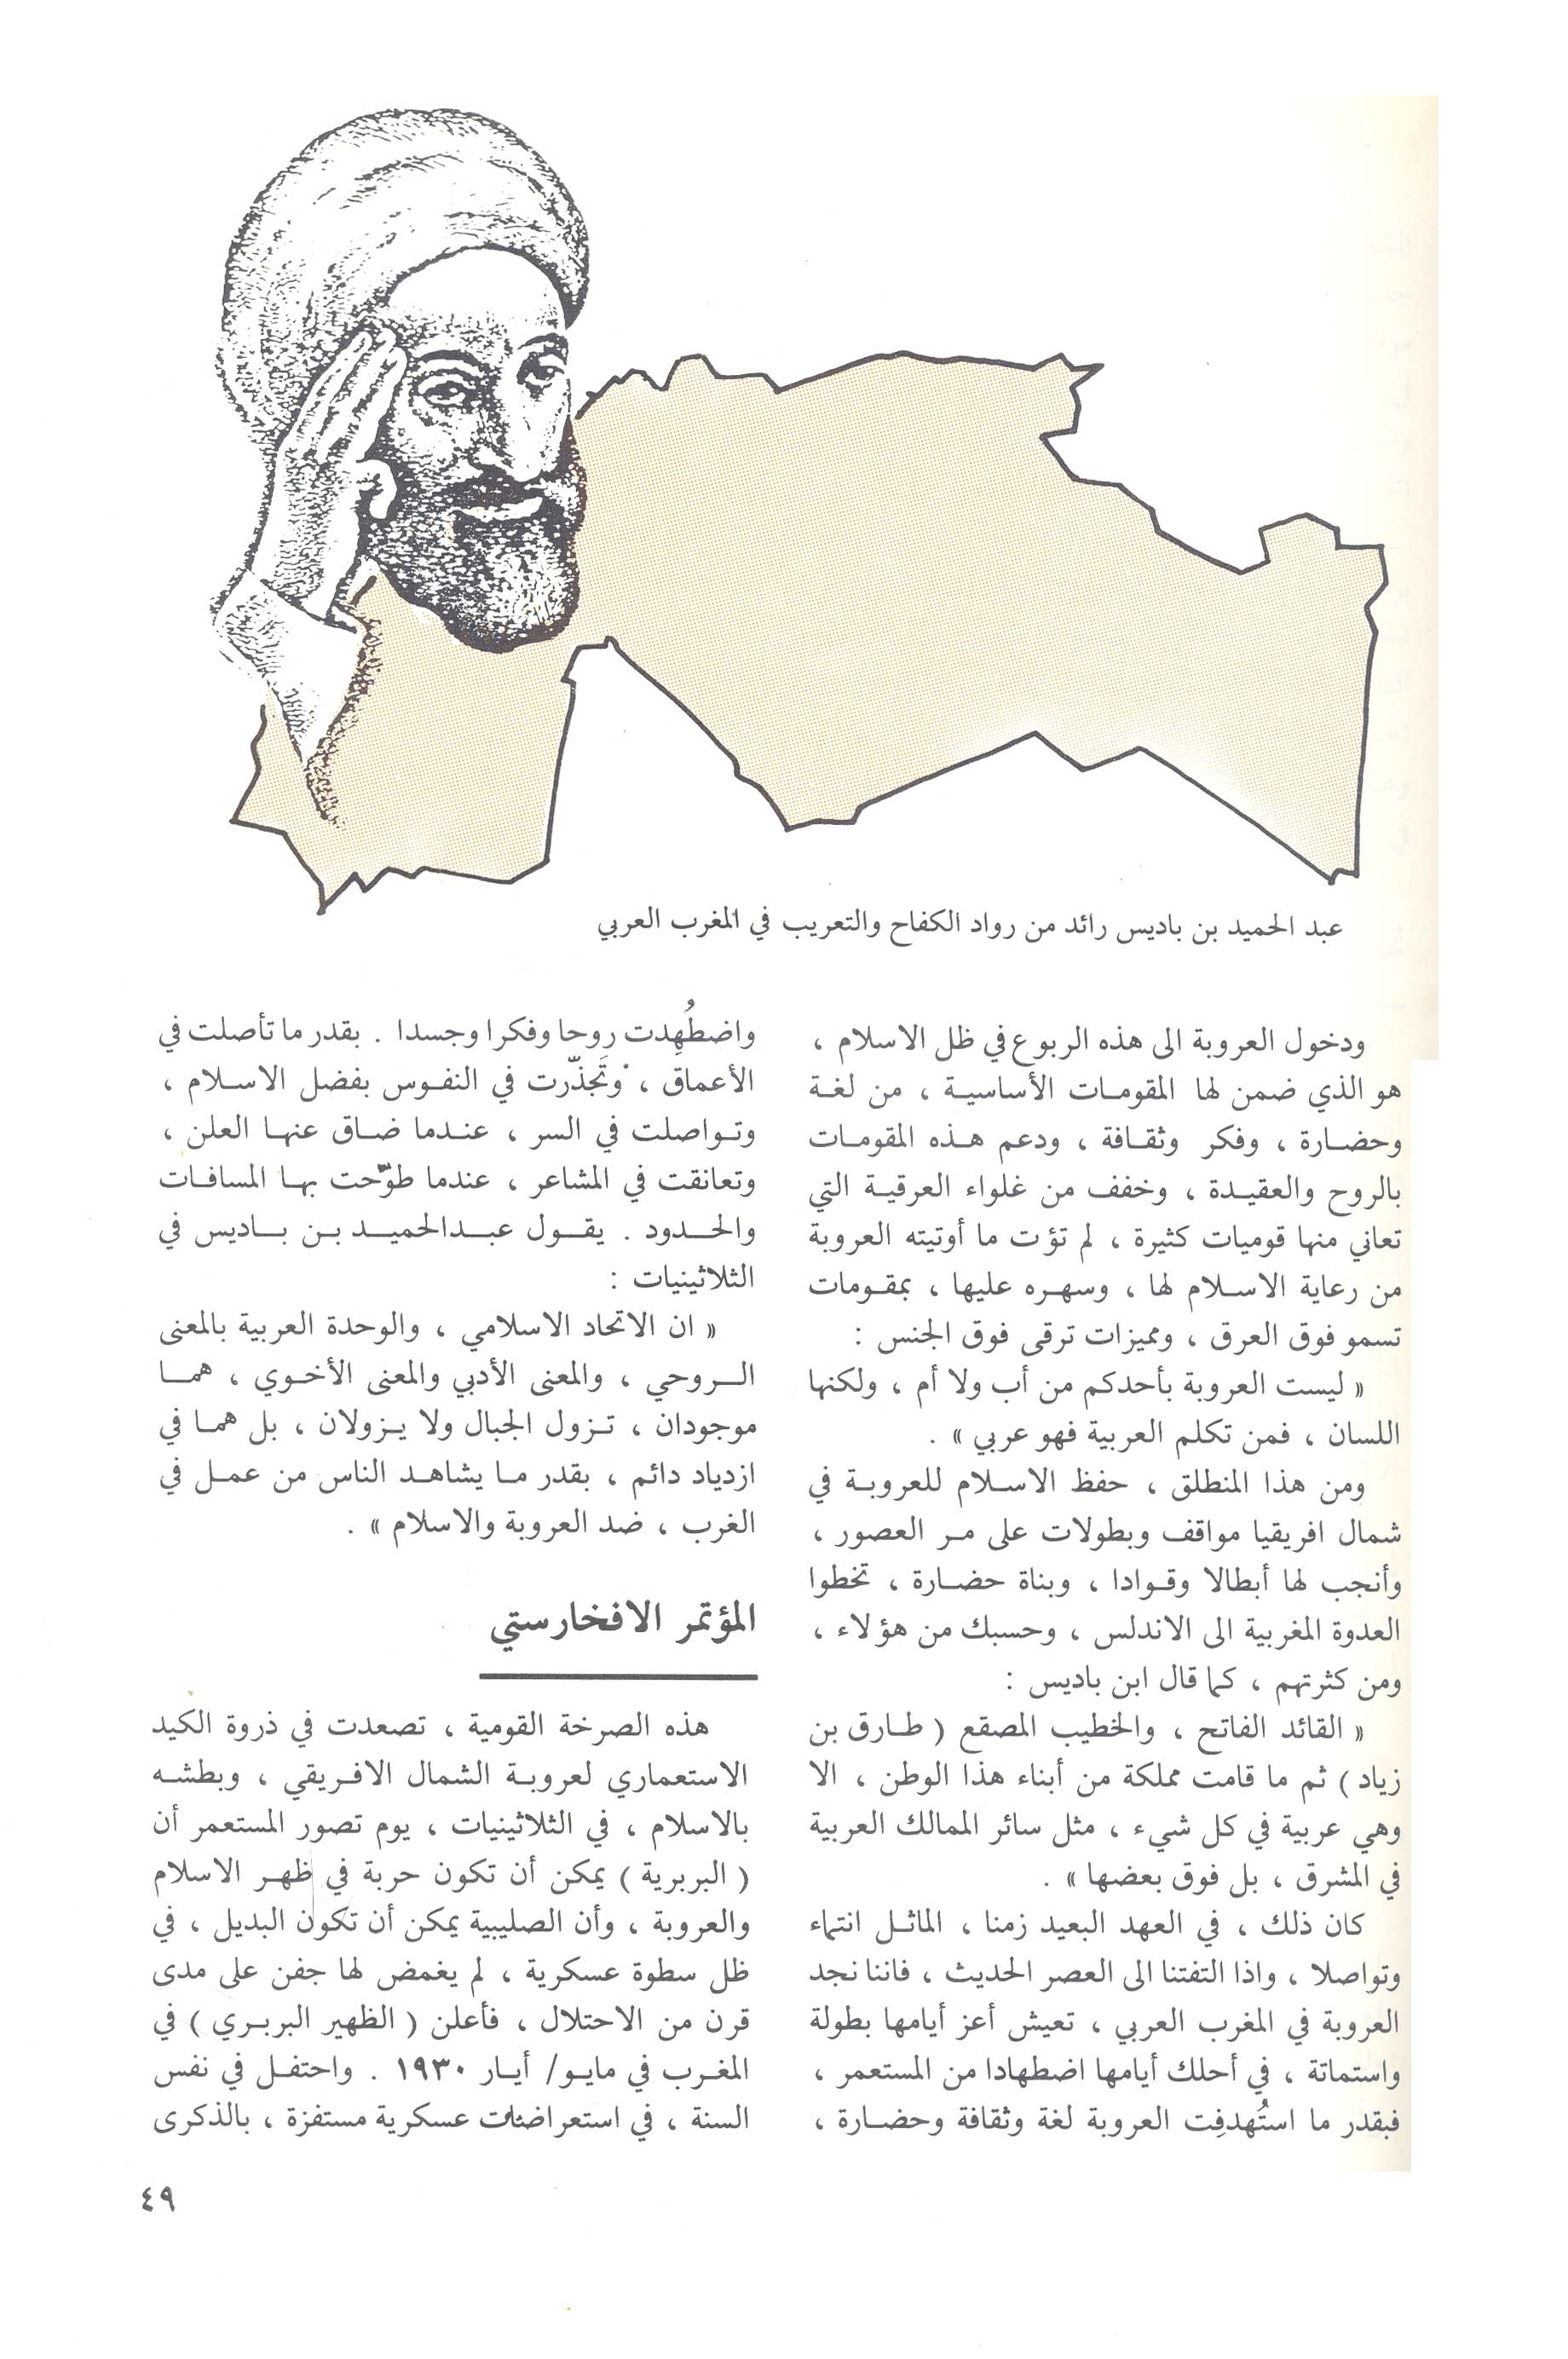 عبد الحميد بن باديس رائد من رواد الكفاح والتعريب في المغرب العربي
ودخول العروبة الى هذه الربوع في ظل الاسلام ،
هو الذي ضمن لها المقومات الأساسية ، من لغة
وحضارة ، وفكر وثقافة ، ودعم هذه المقومات
بالروح والعقيدة ، وخفف من غلواء العرقية التي
تعاني منها قوميات كثيرة ، لم تؤت ما أوتيته العروبة
من رعاية الاسلام لها ، وسهره عليها ، بمقومات
تسمو فوق العرق ، ومميزات ترقى فوق الجنس :
« ليست العروبة بأحدكم من أب ولا أم ، ولكنها
اللسان ، فمن تكلم العربية فهو عربي » .
ومن هذا المنطلق ، حفظ الاسلام للعروبة في
شمال افريقيا مواقف وبطولات على مر العصور ،
وأنجب لها أبطالا وقوادا ، وبناة حضارة ، تخطوا
العدوة المغربية الى الاندلس ، وحسبك من هؤلاء ،
ومن كثرتهم ، كما قال ابن باديس :
« القائد الفاتح ، والخطيب المصقع ( طارق بن
زياد ) ثم ما قامت مملكة من أبناء هذا الوطن ، الا
وهي عربية في كل شيء ، مثل سائر الممالك العربية
في المشرق ، بل فوق بعضها » .
كان ذلك ، في العهد البعيد زمنا ، الماثل انتماء
وتواصلا ، واذا التفتنا الى العصر الحديث ، فاننا نجد
العروبة في المغرب العربي ، تعيش أعز أيامها بطولة
واستماتة ، في أحلك أيامها اضطهادا من المستعمر ،
فبقدر ما استُهدفِت العروبة لغة وثقافة وحضارة ،
واضطُهِدت روحا وفكرا وجسدا . بقدر ما تأصلت في
الأعماق ، وتَجذّرت في النفوس بفضل الاسلام ،
وتواصلت في السر ، عندما ضاق عنها العلن ،
وتعانقت في المشاعر ، عندما طوّحت بها المسافات
والحدود . يقول عبدالحميد بن باديس في
الثلاثينيات :
« ان الاتحاد الاسلامي ، والوحدة العربية بالمعنى
الروحي ، والمعنى الأدبي والمعنى الأخوي ، هما
موجودان ، تزول الجبال ولا يزولان ، بل هما في
ازدياد دائم ، بقدر ما يشاهد الناس من عمل في
الغرب ، ضد العروبة والاسلام » .
المؤتمر الافخارستي
هذه الصرخة القومية ، تصعدت في ذروة الكيد
الاستعماري لعروبة الشمال الافريقي ، وبطشه
بالاسلام ، في الثلاثينيات ، يوم تصور المستعمر أن
( البربرية ) يمكن أن تكون حربة في ظهر الاسلام
والعروبة ، وأن الصليبية يمكن أن تكون البديل ، في
ظل سطوة عسكرية ، لم يغمض لها جفن على مدى
قرن من الاحتلال ، فأعلن ( الظهير البربري ) في
المغرب في مايو/ أيار ١٩٣٠ . واحتفل في نفس
السنة ، في استعراضات عسكرية مستفزة ، بالذكرى
٤٩